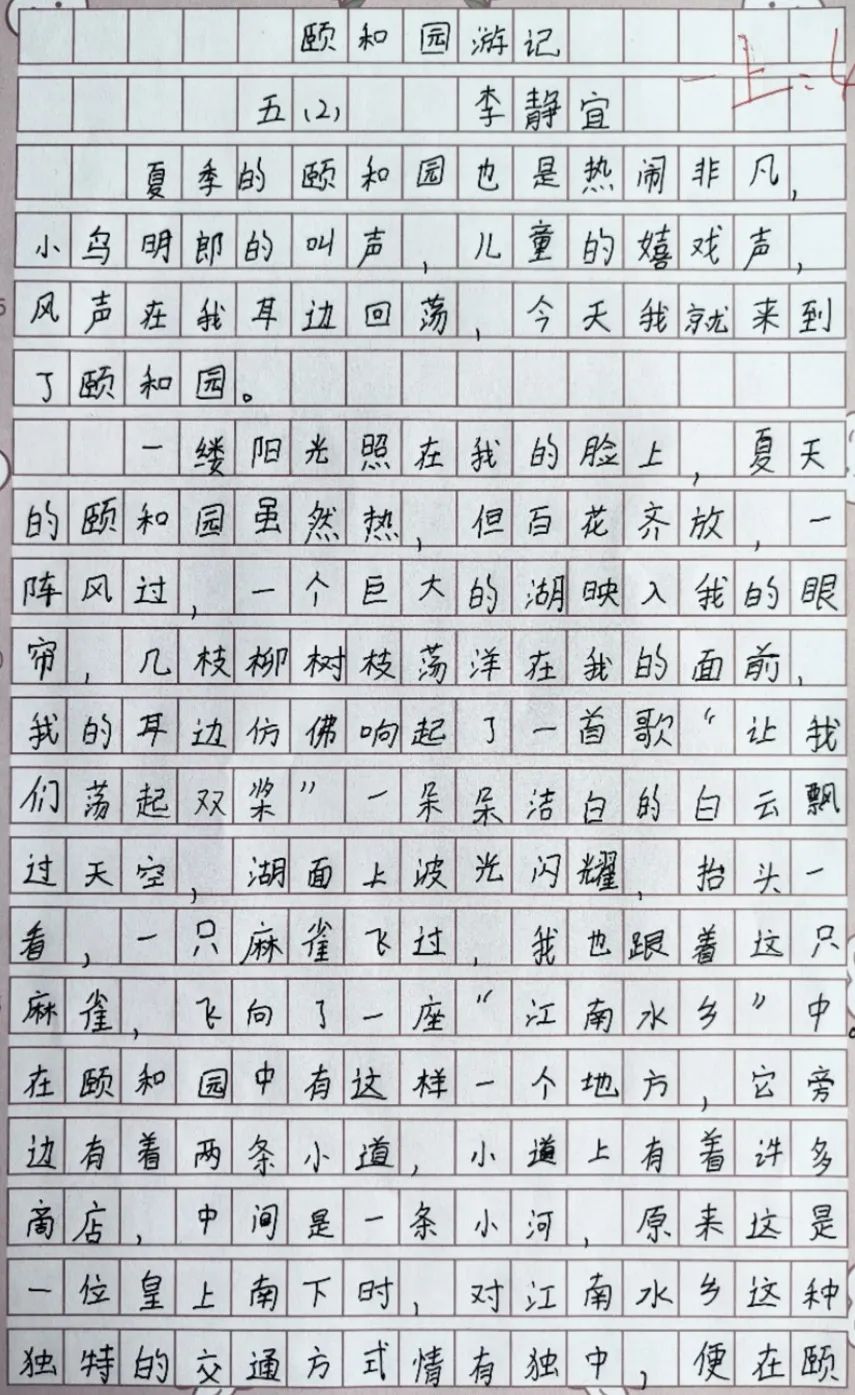 颐和园游记
一上:4
五(2) 李静宜
夏季的颐和园也是热闹非凡,
小鸟明郎的叫声,儿童的嬉戏声,
风声在我耳边回荡,今天我就来到
了颐和园。
一缕阳光照在我的脸上,夏天
的颐和园虽然热,但百花齐放,一
阵风过,一个巨大的湖映入我的眼
帘,几枝柳树枝荡洋在我的面前,
我的耳边仿佛响起了一首歌“让我
们荡起双桨”一朵朵洁白的白云飘
过天空,湖面上波光闪耀,抬头一
看,一只麻雀飞过,我也跟着这只
麻雀,飞向了一座“江南水乡”中。
在颐和园中有这样一个地方,它旁
边有着两条小道,小道上有着许多
商店,中间是一条小河,原来这是
一位皇上南下时,对江南水乡这种
独特的交通方式情有独中,便在颐